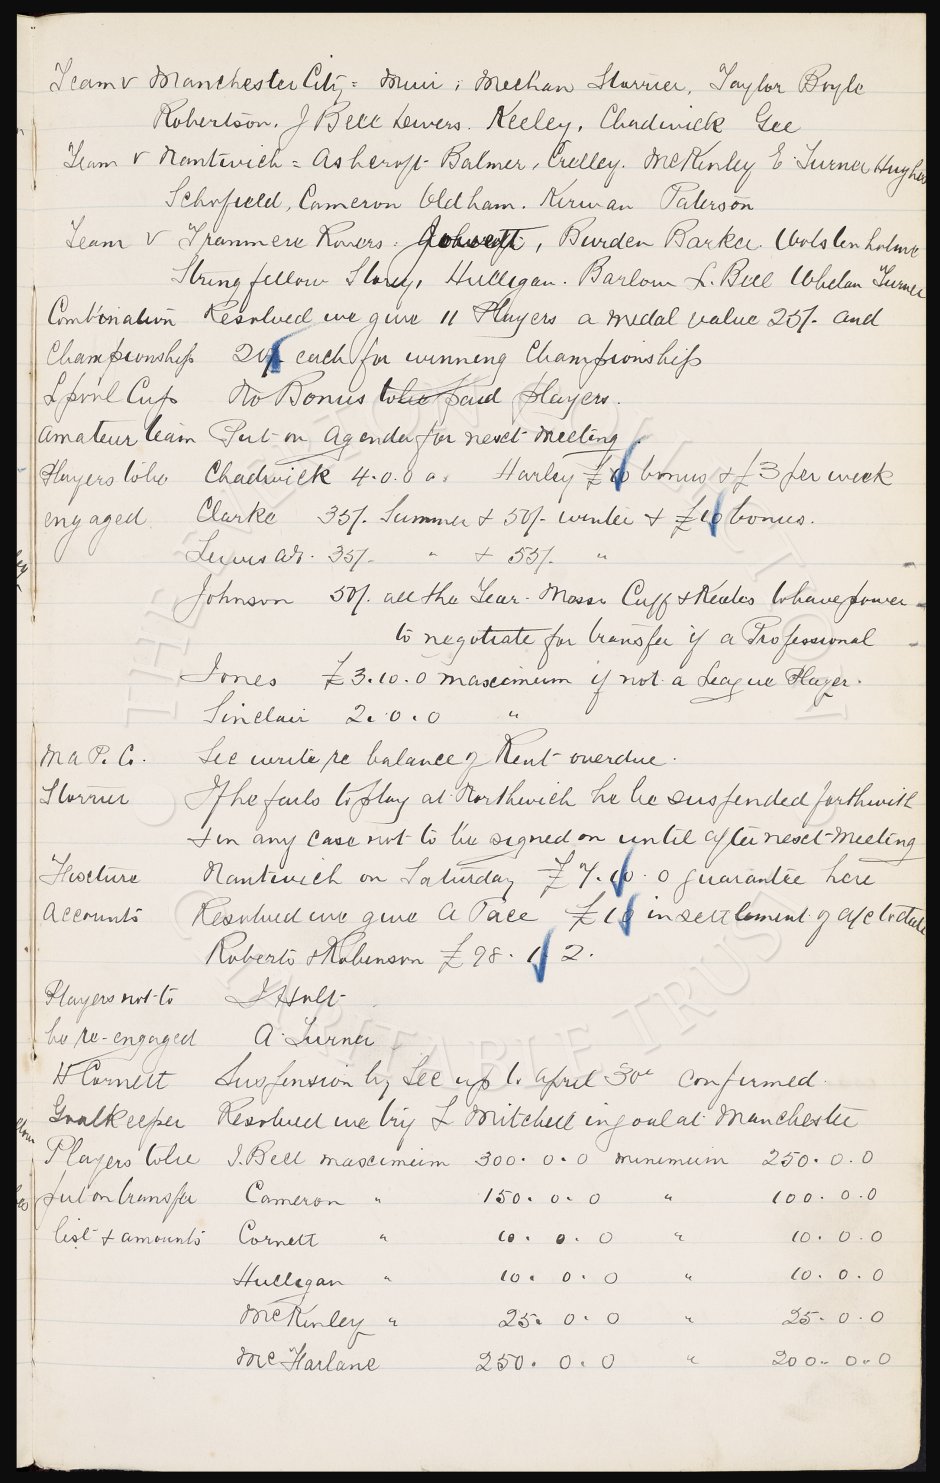 Team v Manchester City = Muir, Meehan Storrier, Taylor Boyle
Robertson. J Bell Divers. Keeley, Chadwick Gee
Team v Nantwich = Ashcroft Balmer, Crelley. McKinley E. Turner Hughes
Schofield, Cameron Oldham. Kirwan Paterson
Team v Tranmere Rovers. , Burden Barker. Wolstenholme
Stringfellow Storey, Hulligan. Barlow L. Bell Whelan Turner
Combination Resolved we give 11 Players a medal value 25/- and
Championship 20/- each for winning Championship
L'pool Cup No Bonus to be paid Players.
Amateur team Put on Agenda for next meeting.
Players to be Chadwick 4.0.0 a. Harley £10 bonus & £3 per week
engaged. Clarke 35/- Summer & 50/- winter & £10 bonus.
Lewis 35/- " & 55/- "
Johnson 50/- all the Year. Messrs Cuff & Keates to have power
to negotiate for transfer if a Professional
Jones £3.10.0 maximum if not a League Player.
Sinclair 2.0.0 "
Ma P. Co. Sec write re balance of Rent overdue.
Storrier If he fails to play at Northwich he be suspended forthwith
& in any case not to be signed on until after next meeting
Fixture Nantwich on Saturday £7.10.0 guarantee here
Accounts Resolved we give A Pace £10 in settlement of a/c to date
Roberts & Robinson £98. 1 2.
Players not to J Holt
be re-engaged A. Turner
H Cornett Suspension by Sec up to April 30th confirmed.
Goalkeeper Resolved we try L Mitchell in goal at Manchester
Players to be J. Bell maximum 300. 0. 0 minimum 250. 0. 0
put on transfer Cameron " 150. 0. 0 " 100. 0. 0
list & amounts Cornett " 10. 0. 0 " 10. 0. 0
Hulligan " 10. 0. 0 " 10. 0. 0
McKinley " 25. 0. 0 " 25. 0. 0
McFarlane 250. 0. 0 " 200. 0. 0
THE EVERTON COLLECTION
CHARITABLE TRUST